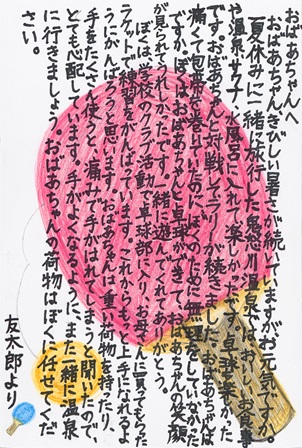 おばあちゃんへ
おばあちゃんきびしい暑さが続いていますがお元気ですか。
夏休みに一緒に旅行した鬼怒川温泉では、おいしいお食事
や温泉、サウナ、水風呂に入れて楽しかったです。卓球も楽しかった
です。おばあちゃんと対戦してラリーが続きました。おばあちゃんが手が
痛くて包帯を巻いていたのに、ぼくのために無理をしていなかった
ですか。ぼくは、おばあちゃんと卓球ができて、おばあちゃんの笑顔
が見られてうれしかったです。一緒に遊んでくれてありがとう。
ぼくは、学校のクラブ活動で卓球部に入り、お母さんに買ってもらった
ラケットで練習をがんばっています。これからもっと上手になれるよ
うにがんばろうと思います。おばあちゃんは、重い荷物を持ったり、
手をたくさん使うと、痛みで手がはれてしまうと聞いたので、
とても心配しています。手がよくなったら、また一緒に温泉
に行きましょう。おばあちゃんの荷物はぼくに任せてくだ
さい。
友太郎より